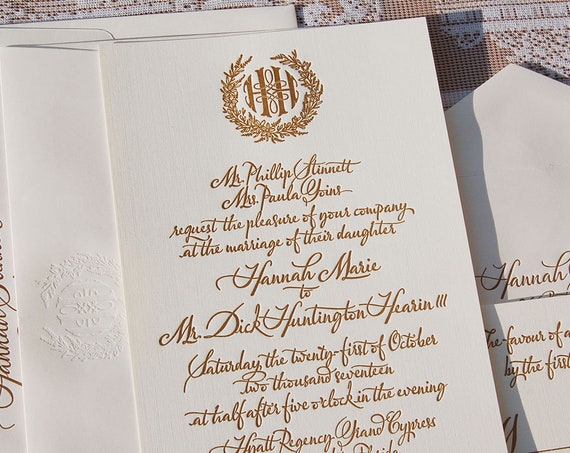 HH
Mr. Phillip Stinnett
Mrs. Paula Goins
request the pleasure of your company
at the marriage of their daughter
Hannah Marie
to
Mr. Dick Huntington Hearin III
Saturday, the twenty-first of October
two thousand seventeen
at half after five o'clock in the evening
Hyatt Regency Grand Cypress
Florida
Hannah
Hannah
The favour of a
by the first